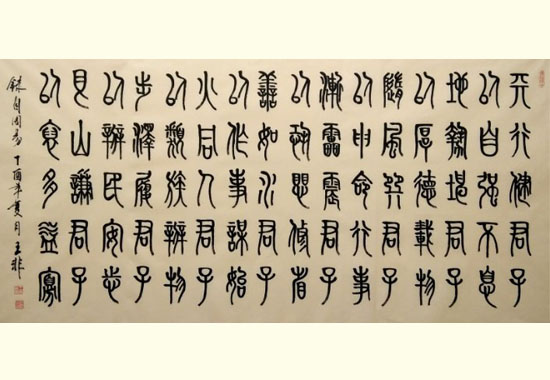 天行健君子
以自強不息
地勢坤君子
以厚德載物
隨風巽君子
以申命行事
洊雷震君子
以恐懼修省
善如水君子
以作事謀始
火同人君子
以類族辨物
步澤履君子
以辯民安志
見山謙君子
以裒多益寡
錄自周易 丁酉年夏月 王非